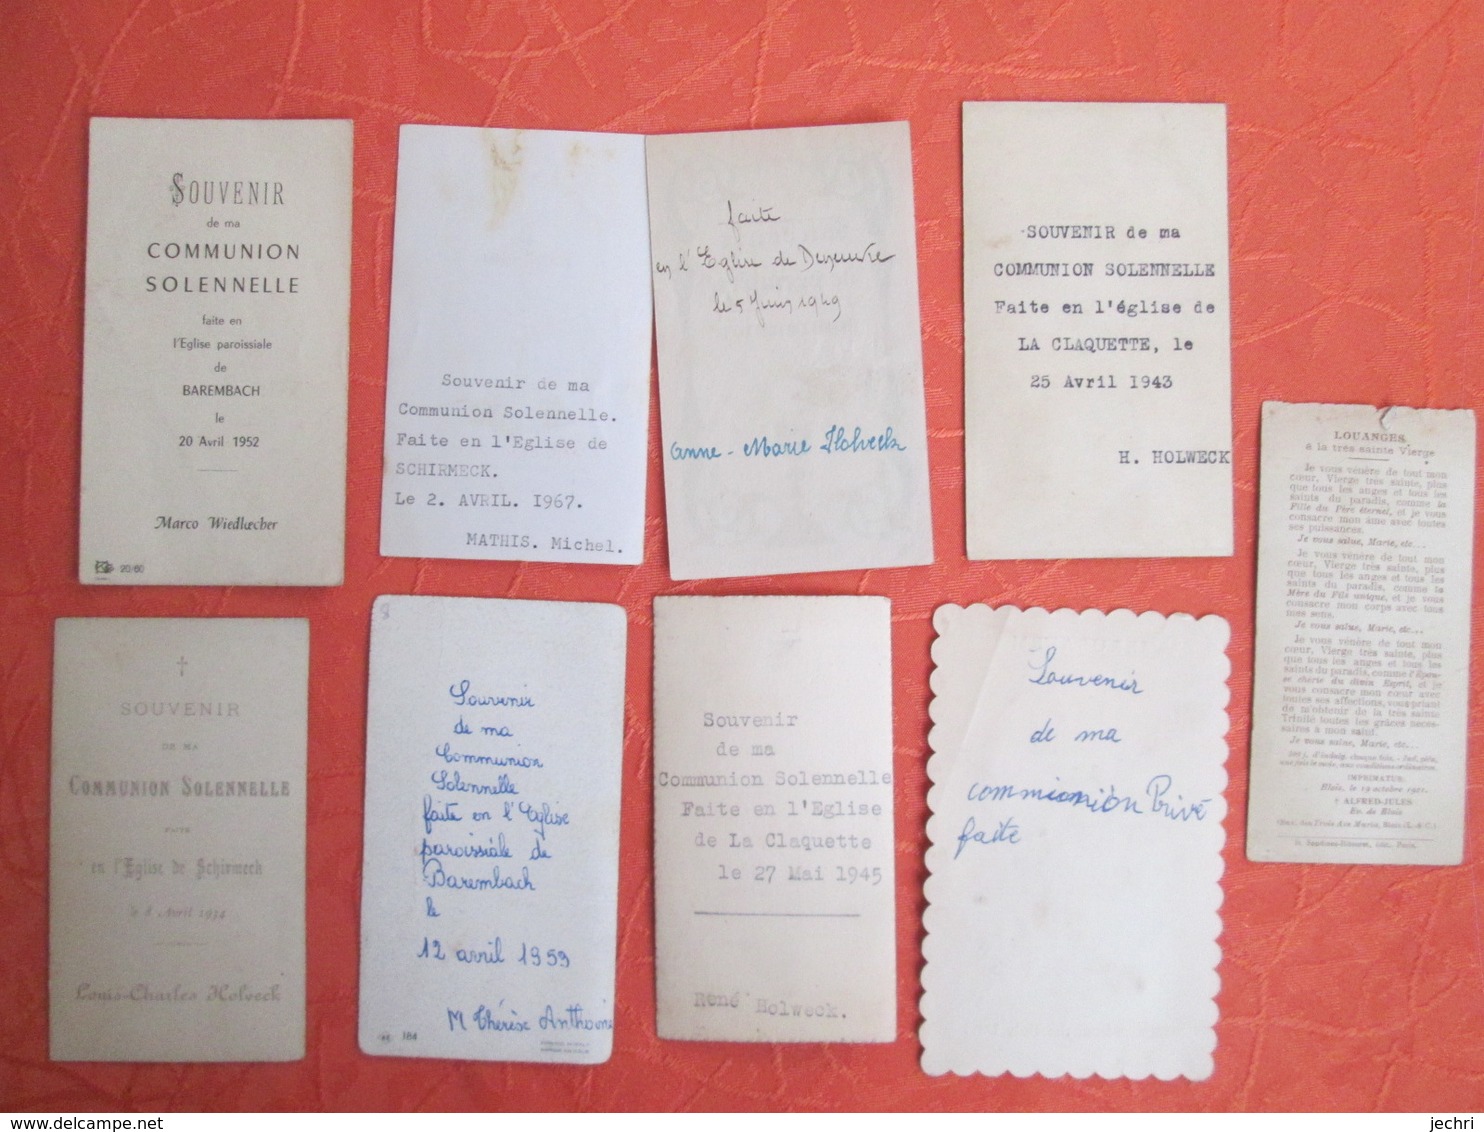 SOUVENIR
de ma
COMMUNION
SOLENNELLE
faite en
l'Eglise paroissiale
de
BAREMBACH
le
20 Avril 1952
Marco Wiedlœcher
20/60
Souvenir de ma
Communion Solennelle.
Faite en l'Eglise de
SCHIRMECK.
Le 2. AVRIL. I967.
MATHIS. Michel.
faite
en l'Eglise de
le 5 Juin 1949
Anne-Marie Holveck
SOUVENIR de ma
COMMUNION SOLENNELLE
Faite en l'église de
LA CLAQUETTE, le
25 Avril 1943
H. HOLWECK
LOUANGES
à la très sainte Vierge
Je vous vénère de tout mon
cœur, Vierge très sainte, plus
que tous les anges et tous les
saints du paradis, comme la
Fille du Père éternel, et je vous
consacre mon âme avec toutes
ses puissances.
Je vous salue, Marie, etc...
Je vous vénère de tout mon
cœur, Vierge très sainte, plus
que tous les anges et tous les
saints du paradis, comme la
Mère du Fils unique, et je vous
consacre mon corps avec tous
mes sens.
Je vous salue, Marie, etc...
Je vous vénère de tout mon
cœur, Vierge très sainte, plus
que tous les anges et tous les
saints du paradis, comme l'Épou-
se chérie du divin Esprit, et je
vous consacre mon cœur avec
toutes ses affections, vous priant
de m'obtenir de la très sainte
Trinité toutes les grâces néces-
saires à mon salut.
Je vous salue, Marie, etc...
300 j. d'indulg. chaque fois. - Ind. plén.
une fois le mois, aux conditions ordinaires.
IMPRIMATUR:
Blois, le 19 octobre 1921.
† ALFRED-JULES
Ev. de Blois
SOUVENIR
DE MA
COMMUNION SOLENNELLE
FAITE
en l'Eglise de Schirmeck
le 8 Avril 1934
Louis-Charles Holveck
8
Souvenir
de ma
Communion
Solennelle
faite en l'Eglise
paroissiale de
Barembach
le
12 avril 1959
M Thérèse Anthoine
184
Souvenir
de ma
Communion Solennelle
Faite en l'Eglise
de La Claquette
le 27 Mai 1945
René Holweck.
Souvenir
de ma
commionion Privé
faite
delcampe.net
jechri